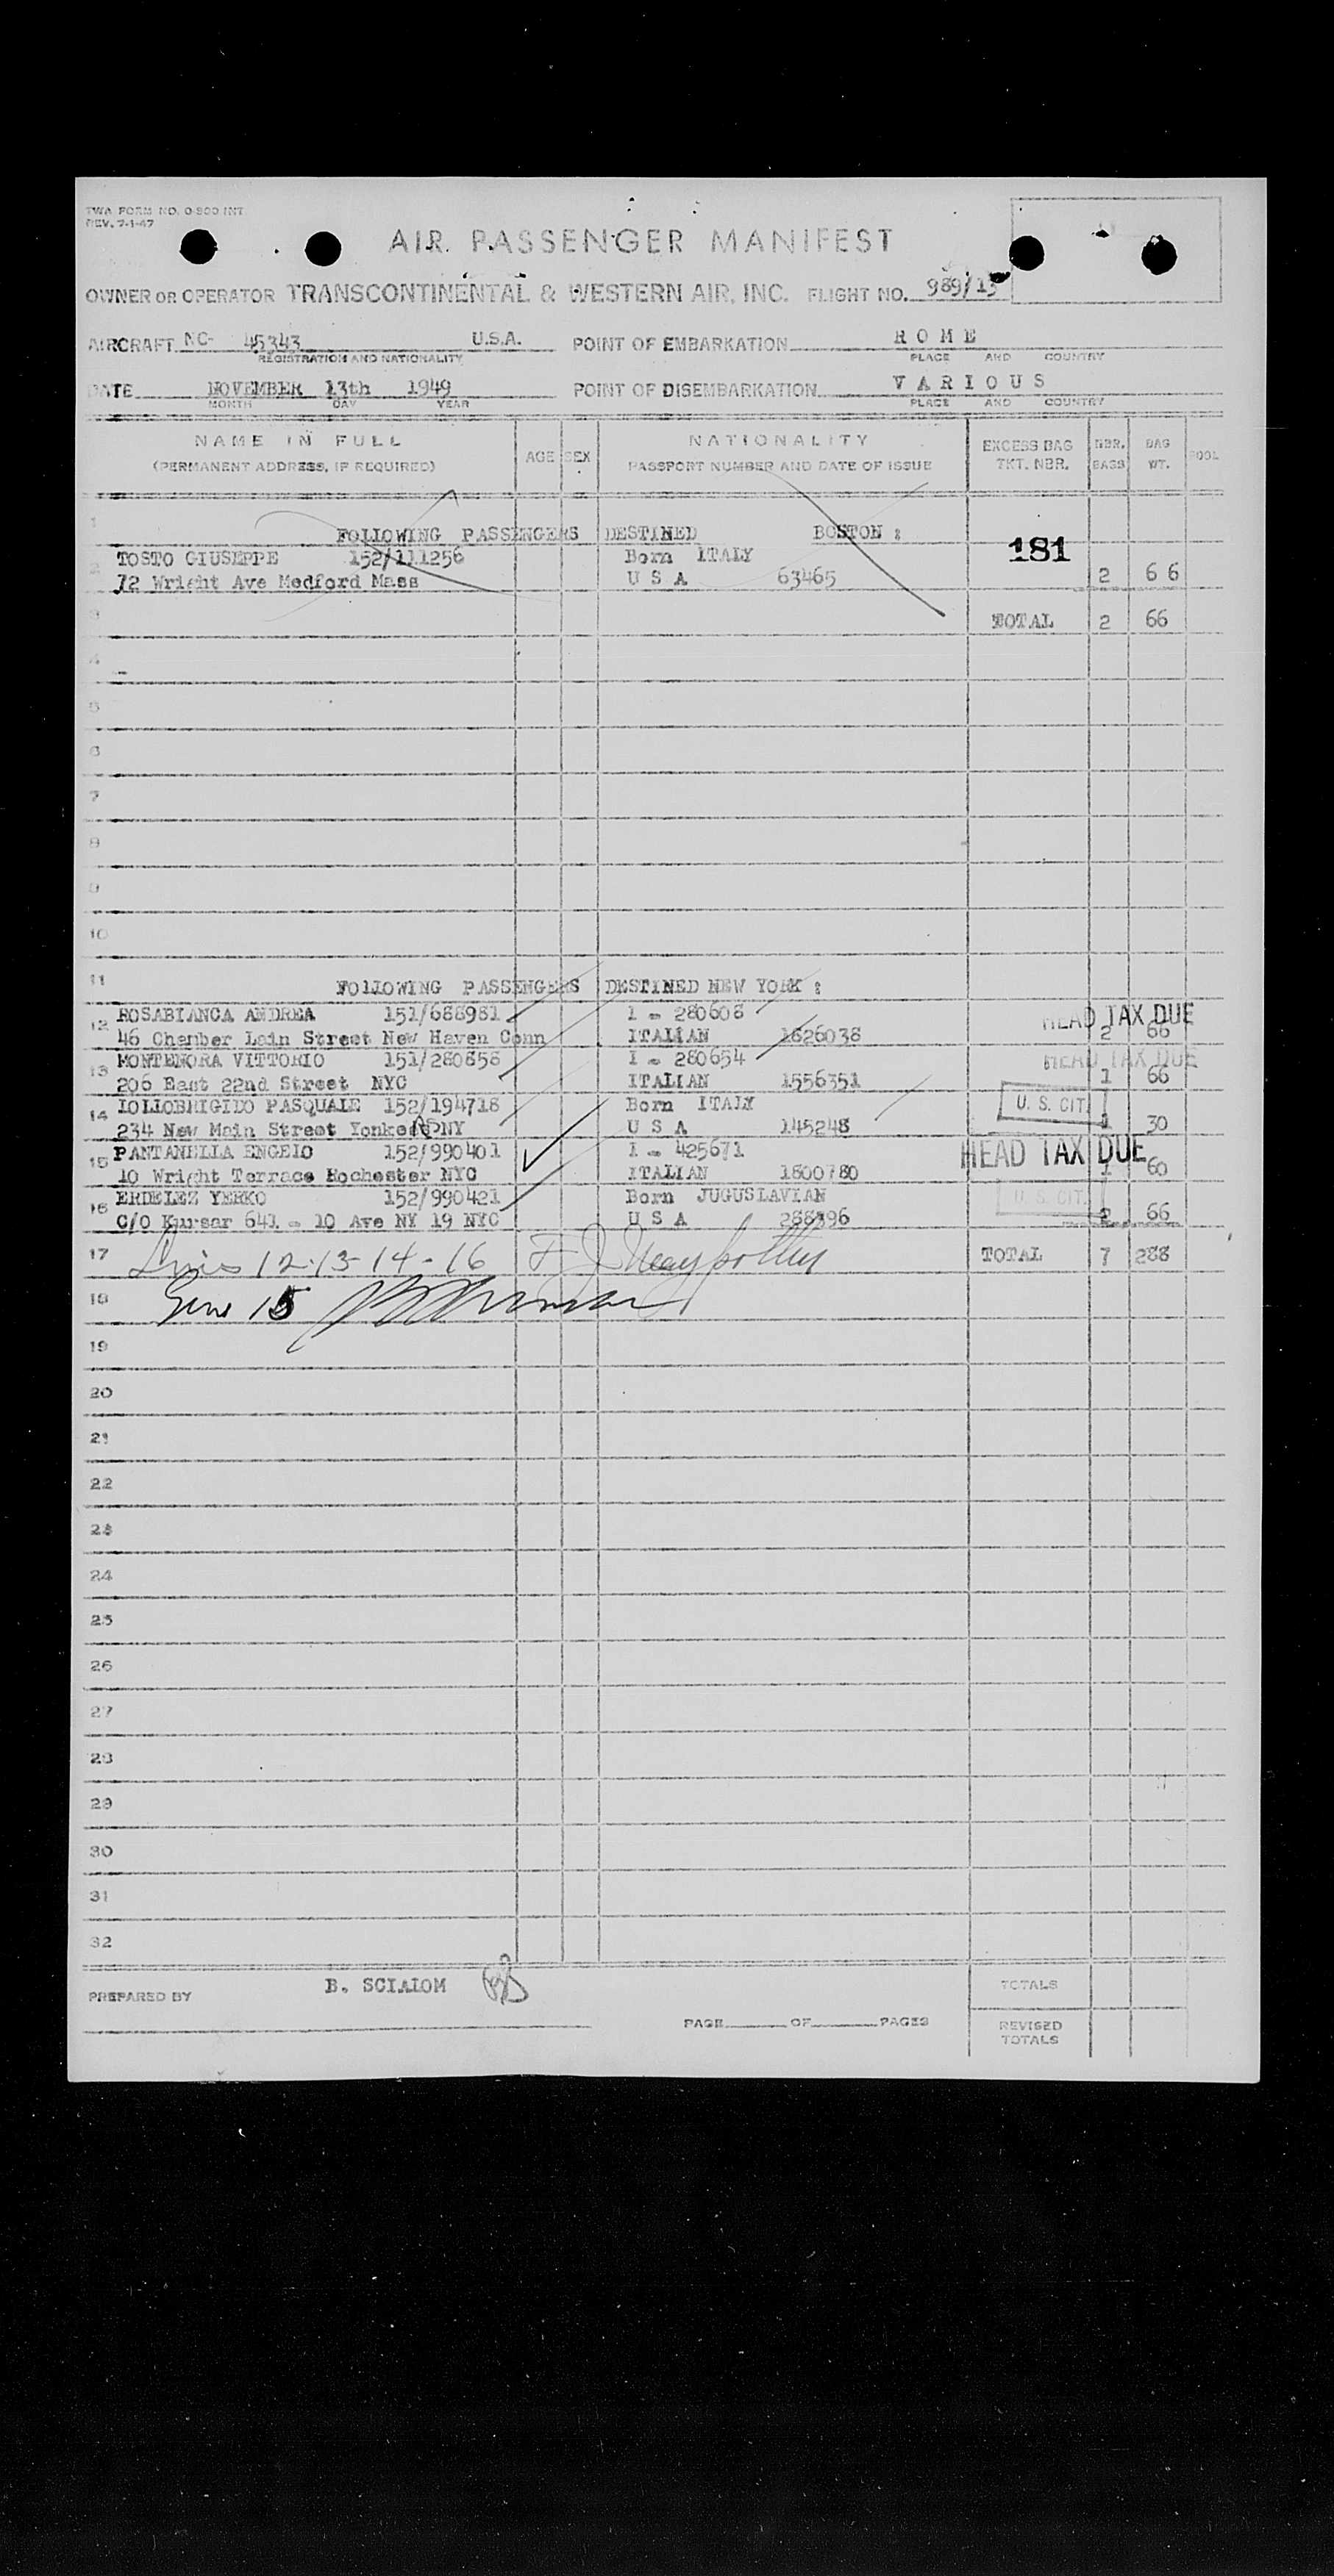 TWA FORM NO. 0-800 INT
REV. 7-1-47
AIR PASSENGER MANIFEST
OWNER OR OPERATOR TRANSCONTINENTAL & WESTERN AIR, INC. FLIGHT NO. 989/13
AIRCRAFT NC- 45343 U.S.A. POINT OF EMBARKATION R O M E
REGISTRATION AND NATIONALITY PLACE AND COUNTRY
DATE NOVEMBER 13th 1949 POINT OF DISEMBARKATION V A R I O U S
MONTH DAY YEAR PLACE AND COUNTRY
NAME IN FULL NATIONALITY EXCESS BAG NBR. BAG
(PERMANENT ADDRESS, IF REQUIRED) AGE SEX PASSPORT NUMBER AND DATE OF ISSUE TKT. NBR. BAGS WT. POOL
1 FOLLOWING PASSENGERS DESTINED BOSTON :
TOSTO GIUSEPPE 152/111256 Born ITALY 181
2 72 Wright Ave Medford Mass U S A 63465 2 66
3 TOTAL 2 66
4 -
5
6
7
8
9
10
11 FOLLOWING PASSENGERS DESTINED NEW YORK :
12 ROSABIANCA ANDREA 151/688981 I - 280608 HEAD TAX DUE
46 Chamber Lain Street New Haven Conn ITALIAN 1626038 2 66
13 MONTENORA VITTORIO 151/280858 I - 280654 HEAD TAX DUE
206 East 22nd Street NYC ITALIAN 1556351 1 66
14 LOLLOBRIGIDO PASQUALE 152/194718 Born ITALY U. S. CIT.
234 New Main Street Yonkers NY U S A 145248 1 30
15 PANTANELLA ENGELO 152/990401 I - 425671 HEAD TAX DUE
10 Wright Terrace Rochester NYC ITALIAN 1800780 1 60
16 ERDELEZ YERKO 152/990421 Born JUGUSLAVIAN U. S. CIT.
C/O Kursar 641 - 10 Ave NY 19 NYC U S A 288396 2 66
17 12-13-14-16 TOTAL 7 288
18 15
19
20
21
22
23
24
25
26
27
28
29
30
31
32
PREPARED BY B. SCIALOM TOTALS
PAGE OF PAGES REVISED
TOTALS